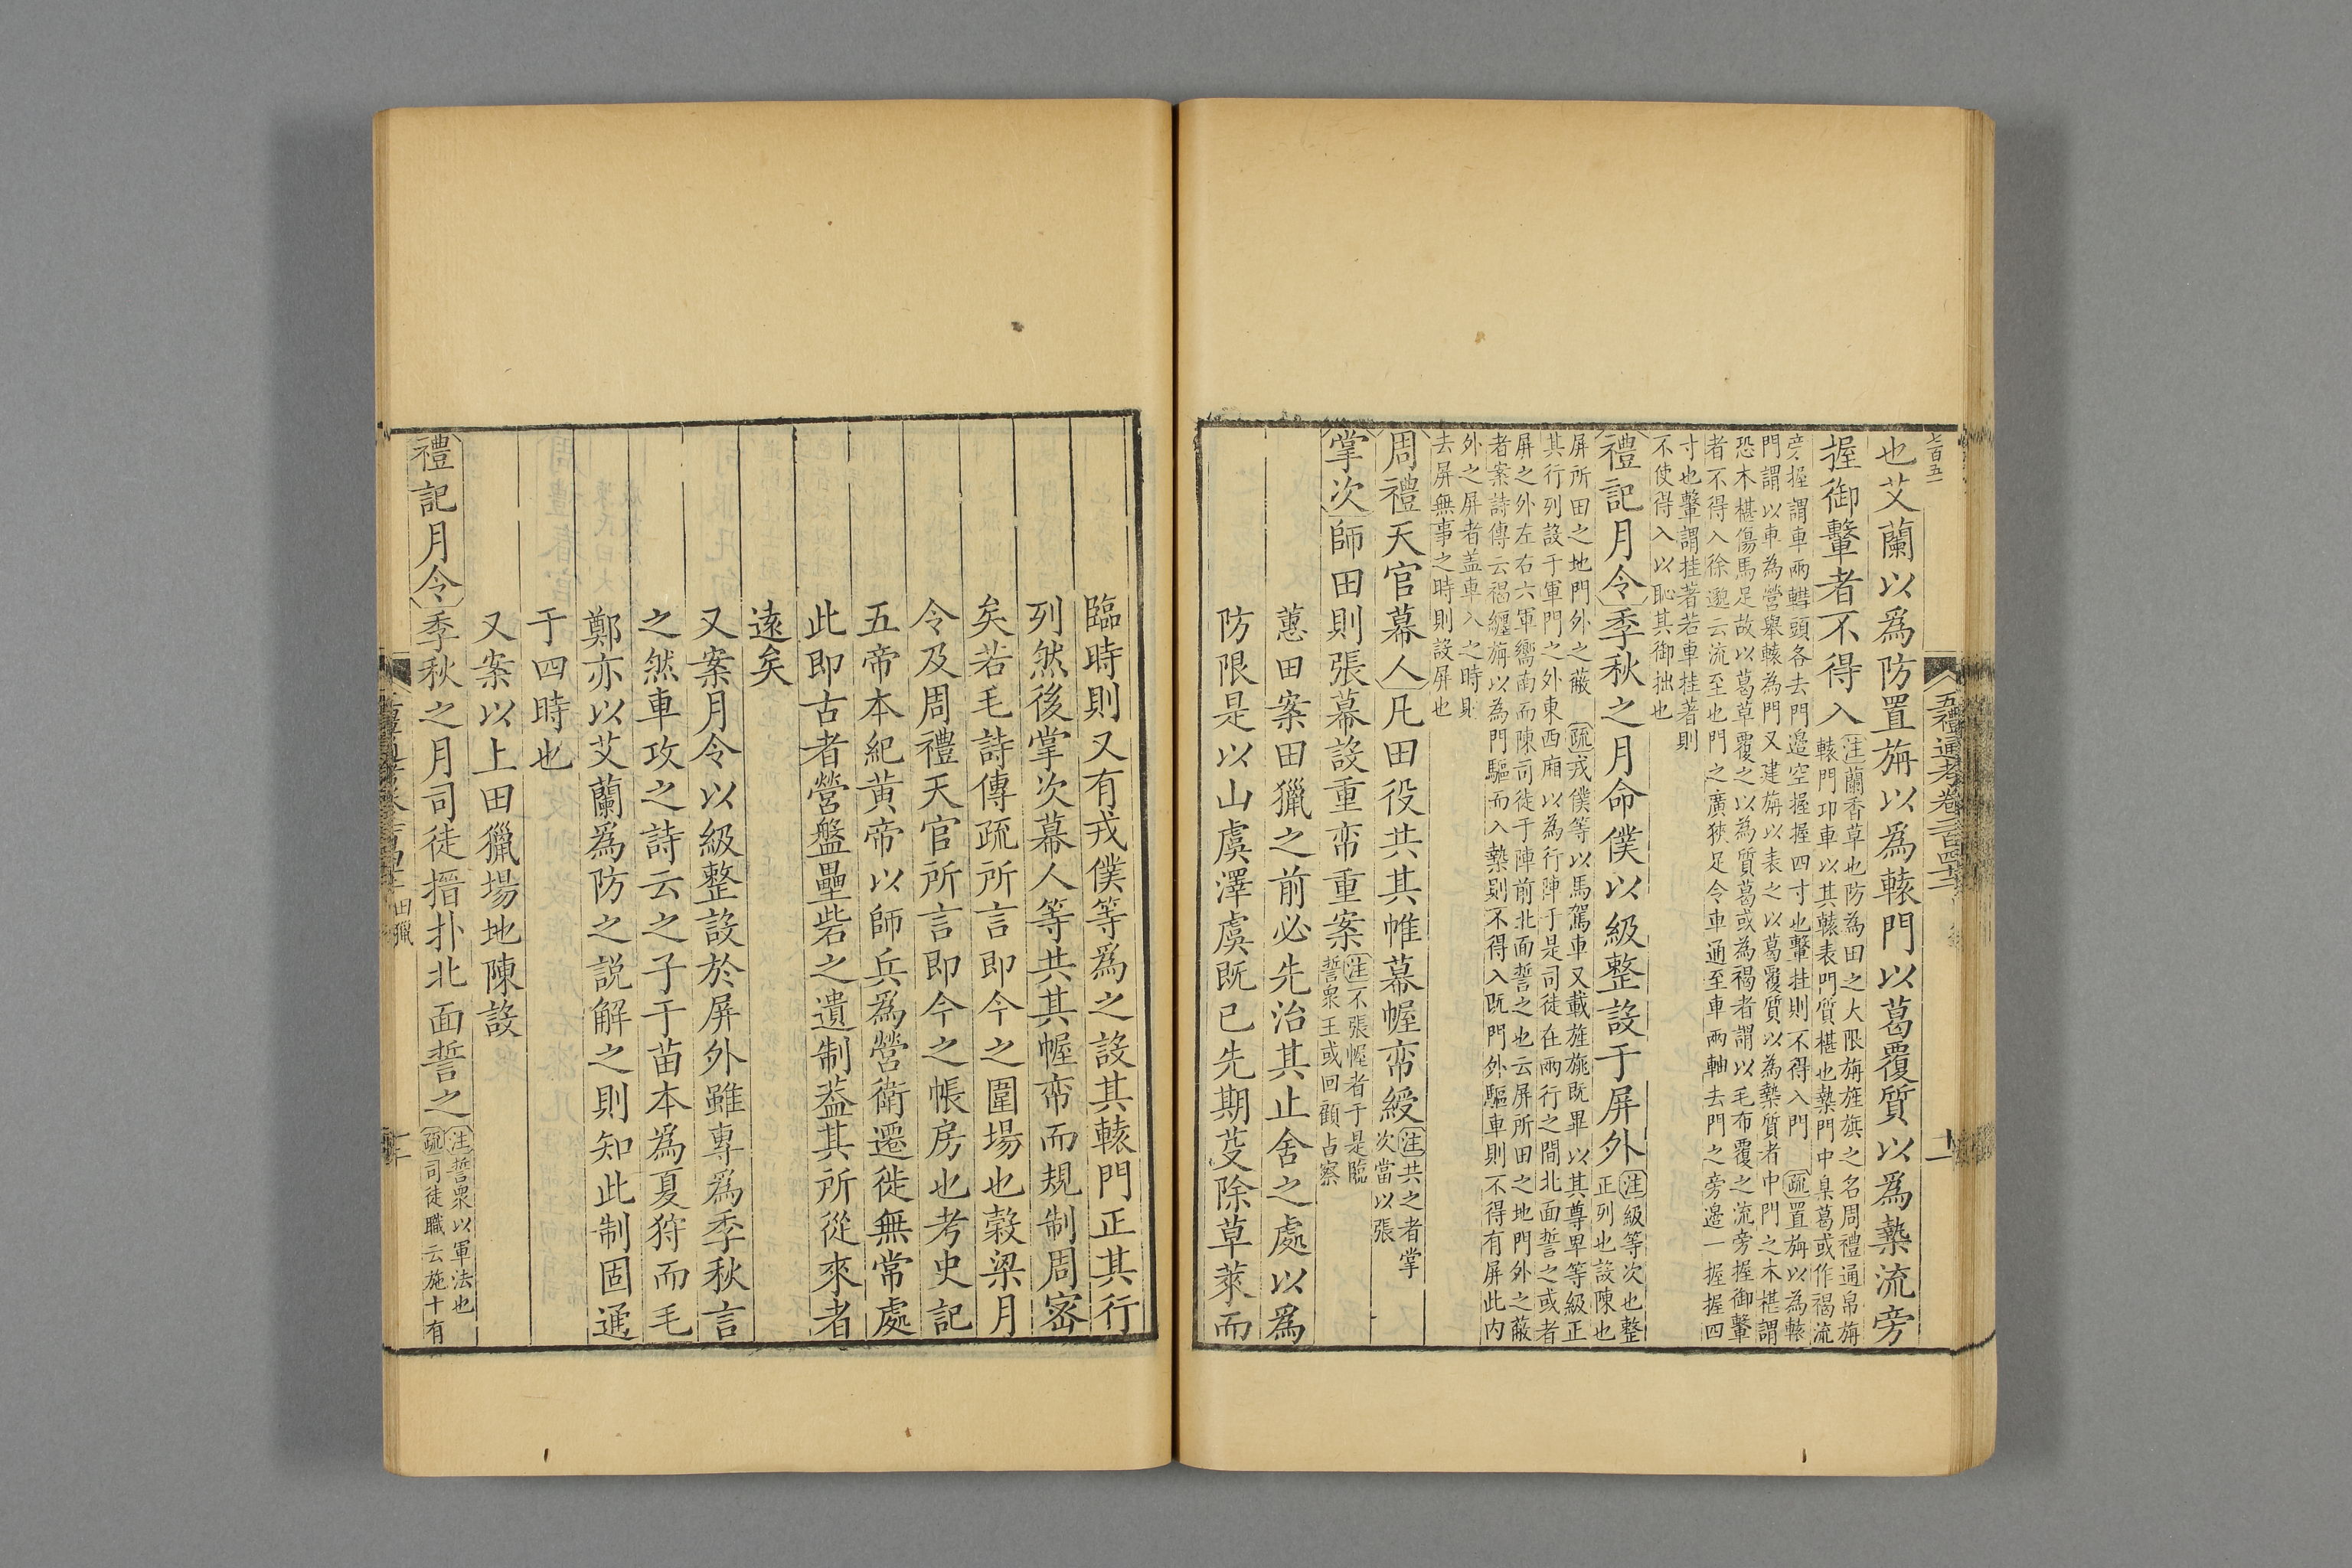 七百五
五禮通考卷二百四十二
十一
也艾蘭以爲防置旃以爲轅門以葛覆質以爲槷流旁
握御轚者不得入
注蘭香草也防為田之大限旃旌旗之名周禮通帛旃
轅門卬車以其轅表門質椹也槷門中臬葛或作褐流
旁握謂車兩轊頭各去門邉空握握四寸也轚挂則不得入門 疏置旃以為轅
門謂以車為營舉轅為門又建旃以表之以葛覆質以為槷質者中門之木椹謂
恐木椹傷馬足故以葛草覆之以為質葛或為褐者謂以毛布覆之流旁握御轚
者不得入徐邈云流至也門之廣狹足令車通至車兩軸去門之旁邉一握握四
寸也轚謂挂著若車挂著則
不使得入以恥其御拙也
禮記月令季秋之月命僕以級整設于屏外
注級等次也整
正列也設陳也
屏所田之地門外之蔽 疏戎僕等以馬駕車又載旌旐既畢以其尊卑等級正
其行列設于軍門之外東西廂以為行陣于是司徒在兩行之間北面誓之或者
屏之外左右六軍嚮南而陳司徒于陣前北面誓之也云屏所田之地門外之蔽
者案詩傳云褐纏旃以為門驅而入槷則不得入既門外驅車則不得有屏此内
外之屏者盖車入之時則
去屏無事之時則設屏也
周禮天官幕人凡田役共其帷幕幄帟綬
注共之者掌
次當以張
掌次師田則張幕設重帟重案
注不張幄者于是臨
誓衆王或回顧占察
蕙田案田獵之前必先治其止舍之處以爲
防限是以山虞澤虞既已先期芟除草萊而
臨時則又有戎僕等爲之設其轅門正其行
列然後掌次幕人等共其幄帟而規制周密
矣若毛詩傳疏所言即今之圍場也穀梁月
令及周禮天官所言即今之帳房也考史記
五帝本紀黄帝以師兵爲營衛遷徙無常處
此即古者營盤壘砦之遺制葢其所從來者
遠矣
又案月令以級整設於屏外雖專爲季秋言
之然車攻之詩云之子于苗本爲夏狩而毛
鄭亦以艾蘭爲防之説解之則知此制固通
于四時也
又案以上田獵場地陳設
禮記月令季秋之月司徒搢扑北面誓之
注誓衆以軍法也
疏司徒職云施十有
田獵